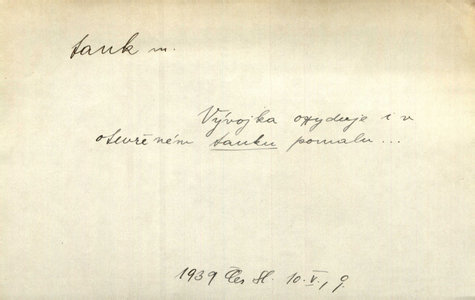 tank m.
Vývojka oxyduje i v
otevřeném tanku pomalu...
1939 Čes Sl. 10.V., 9.